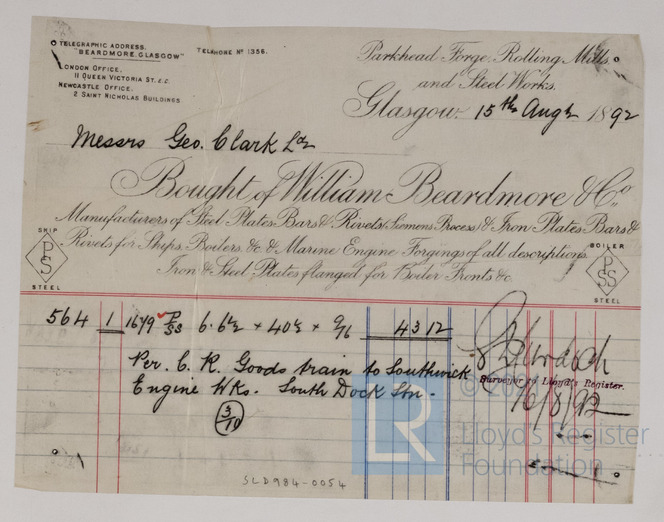 TELEGRAPHIC ADDRESS.
"BEARDMORE. GLASGOW"
TELEPHONE No 1356.
LONDON OFFICE.
11 QUEEN VICTORIA ST. E.C.
NEWCASTLE OFFICE.
2 SAINT NICHOLAS BUILDINGS.
Parkhead Forge, Rolling Mills,
and Steel Works.
Glasgow. 15th Augt 1892
Messrs Geo. Clark Ld
Bought of William Beardmore & Co.
Manufacturers of Steel Plates Bars & Rivets, (Siemens Process) & Iron Plates Bars &
Rivets for Ships, Boilers, &c. & Marine Engine Forgings of all descriptions.
Iron & Steel Plates flanged for Boiler Fronts &c.
SHIP
PS
STEEL
BOILER
PSS
STEEL
564 1 1679 P/SS 6.6½ × 40½ × 9/16 4312
Per. C. R. Goods train to Southwick
Engine Wks. South Dock Stn.
3/10
Surveyor to Lloyd's Register.
16/8/92
SLD984-0054
LR
©
Lloyd's Register
Foundation